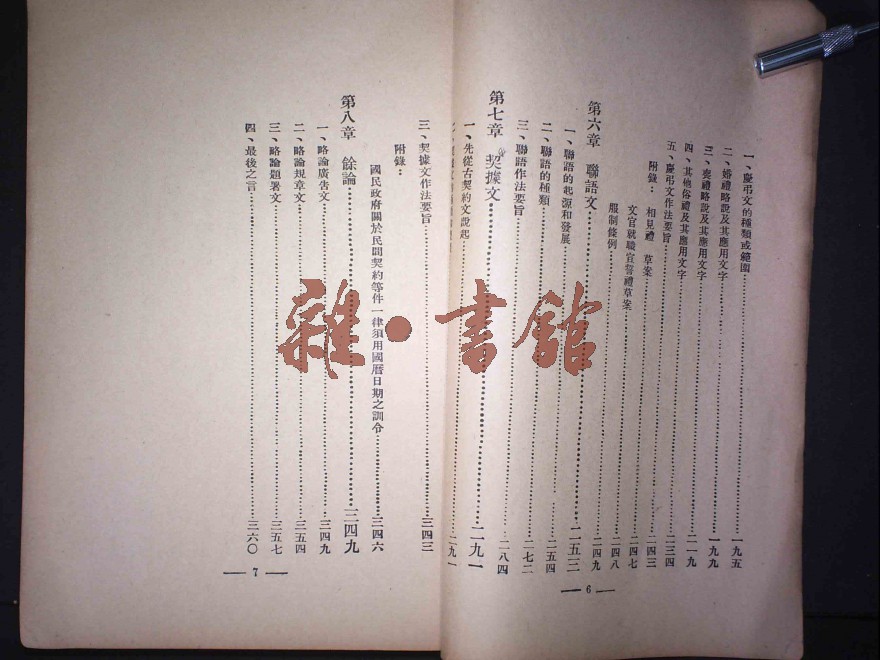 一、慶弔文的種類或範圍……一九五
二、婚禮略說及其應用文字……一九九
三、喪禮略說及其應用文字……二一九
四、其他俗禮及其應用文字……二三四
五、慶弔文作法要旨……二四三
附錄：相見禮草案……二四七
文官就職宣誓禮草案……二四八
服制條例……二四九
第六章 聯語文……二五三
一、聯語的起源和發展……二五四
二、聯語的種類……二七二
三、聯語作法要旨……二八四
第七章 契據文……二九一
一、先從古契約文說起……二九一
三、契據文作法要旨……三四三
附錄：
國民政府關於民間契約等件一律須用國曆日期之訓令……三四六
第八章 餘論……三四九
一、略論廣告文……三四九
二、略論規章文……三五四
三、略論題署文……三五七
四、最後之言……三六〇
6
7
雜·書館